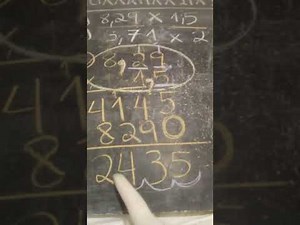 8,29 x 1,5
5,71 x 2
8,29
1,5
4145
8290
2435